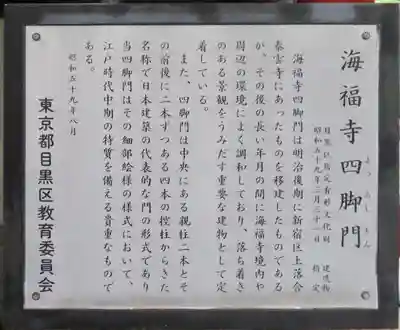 海福寺四脚門
よつあしもん
目黒区指定有形文化財 建造物
昭和五十九年三月三十一日 指定
海福寺四脚門は明治後期に新宿区上落合
泰雲寺にあったものを移建したものである
が、その後の長い年月の間に海福寺境内や
周辺の環境によく調和しており、落ち着き
のある景観をうみだす重要な建物として定
着している。
また、四脚門は中央にある親柱二本とそ
の前後に二本ずつある四本の控柱からきた
名称で日本建築の代表的な門の形式であり
当四脚門はその細部絵様の様式において、
江戸時代中期の特質を備える貴重なもので
ある。
昭和五十九年八月
東京都目黒区教育委員会